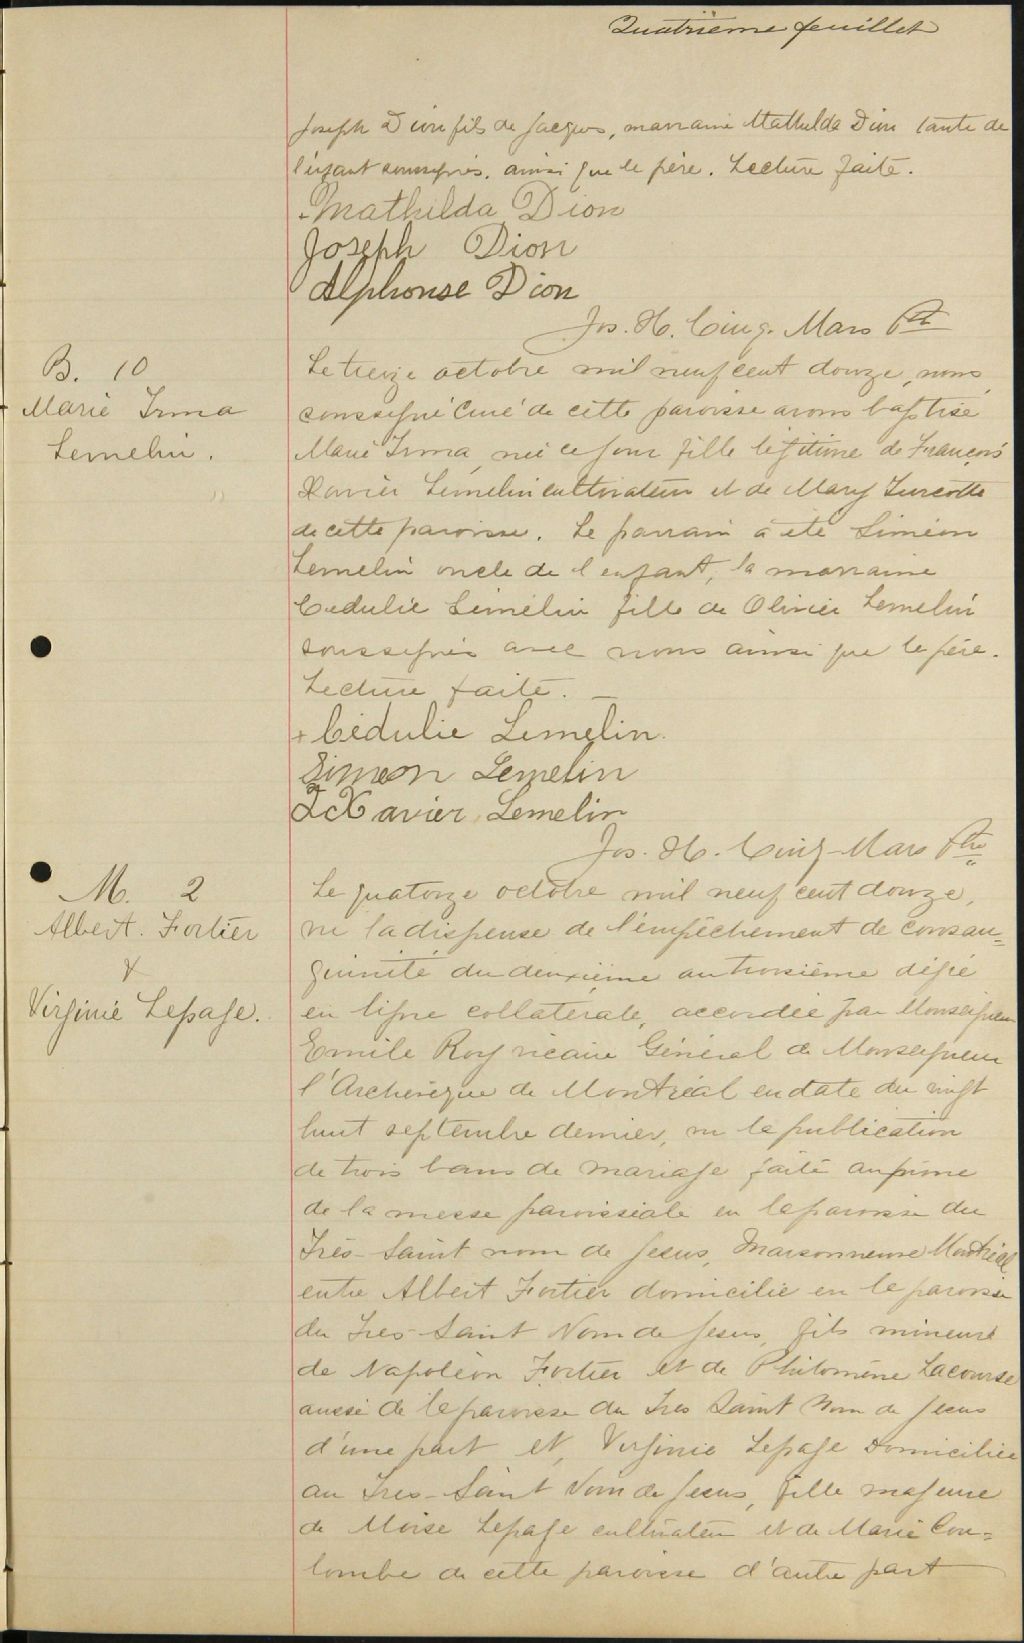 Quatrième feuillet
Joseph Dion fils de Jacques, marraine Mathilda Dion tante de
l'enfant soussignés, ainsi que le père. Lecture faite.
Mathilda Dion
Joseph Dion
Alphonse Dion
Jos. H. Cinq-Mars Ptre
B. 10
Marie Irma
Lemelin.
Le treize octobre mil neuf cent douze, nous
soussigné Curé de cette paroisse avons baptisé
Marie Irma, née ce jour fille légitime de François
Xavier Lemelin cultivateur et de Mary Turcotte
de cette paroisse. Le parrain a été Siméon
Lemelin oncle de l'enfant, la marraine
Cédulie Lemelin fille de Olivier Lemelin
soussignés avec nous ainsi que le père.
Lecture faite.
+ Cédulie Lemelin.
Simeon Lemelin
F X avier Lemelin
Jos. H. Cinq-Mars Ptre
M. 2
Albert Fortier
&
Virginie Lepage.
Le quatorze octobre mil neuf cent douze,
vu la dispense de l'empêchement de consan=
guinité du deuxième au troisième dégré
en ligne collatérale, accordée par Monseigneur
Emile Roy vicaire Général de Monseigneur
l'Archevêque de Montréal en date du vingt
huit septembre dernier, vu la publication
de trois bans de mariage faite au prône
de la messe paroissiale en la paroisse du
Très-Saint nom de Jesus, Maisonneuve Montréal
entre Albert Fortier domicilié en la paroisse
du Tres-Saint Nom de Jesus, fils mineur
de Napoléon Fortier et de Philomène Lacourse
aussi de la paroisse du Tres Saint Nom de Jesus
d'une part et, Virginie Lepage domiciliée
au Tres-Saint Nom de Jesus, fille majeure
de Moïse Lepage cultivateur et de Marie Cou=
lombe de cette paroisse d'autre part